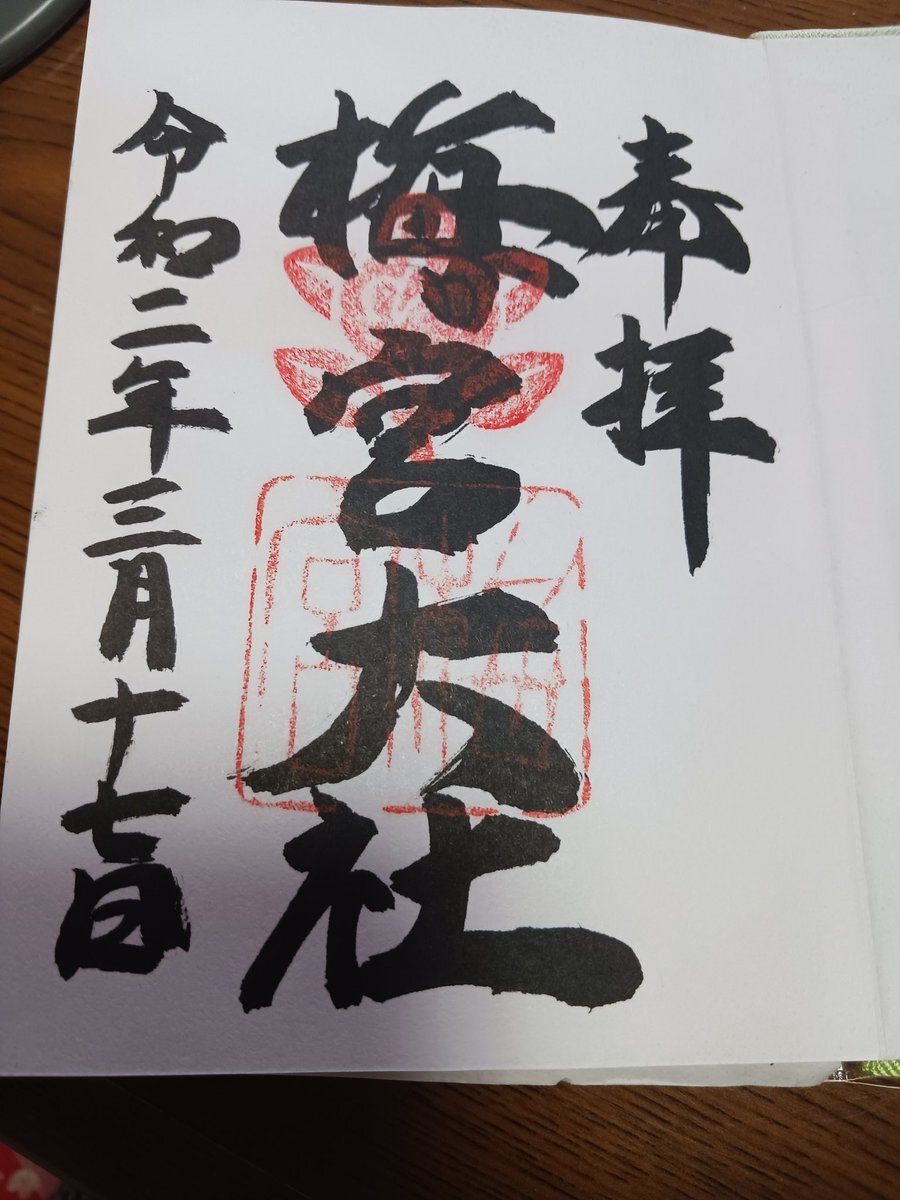 奉拝
梅宮大社
令和二年三月十七日